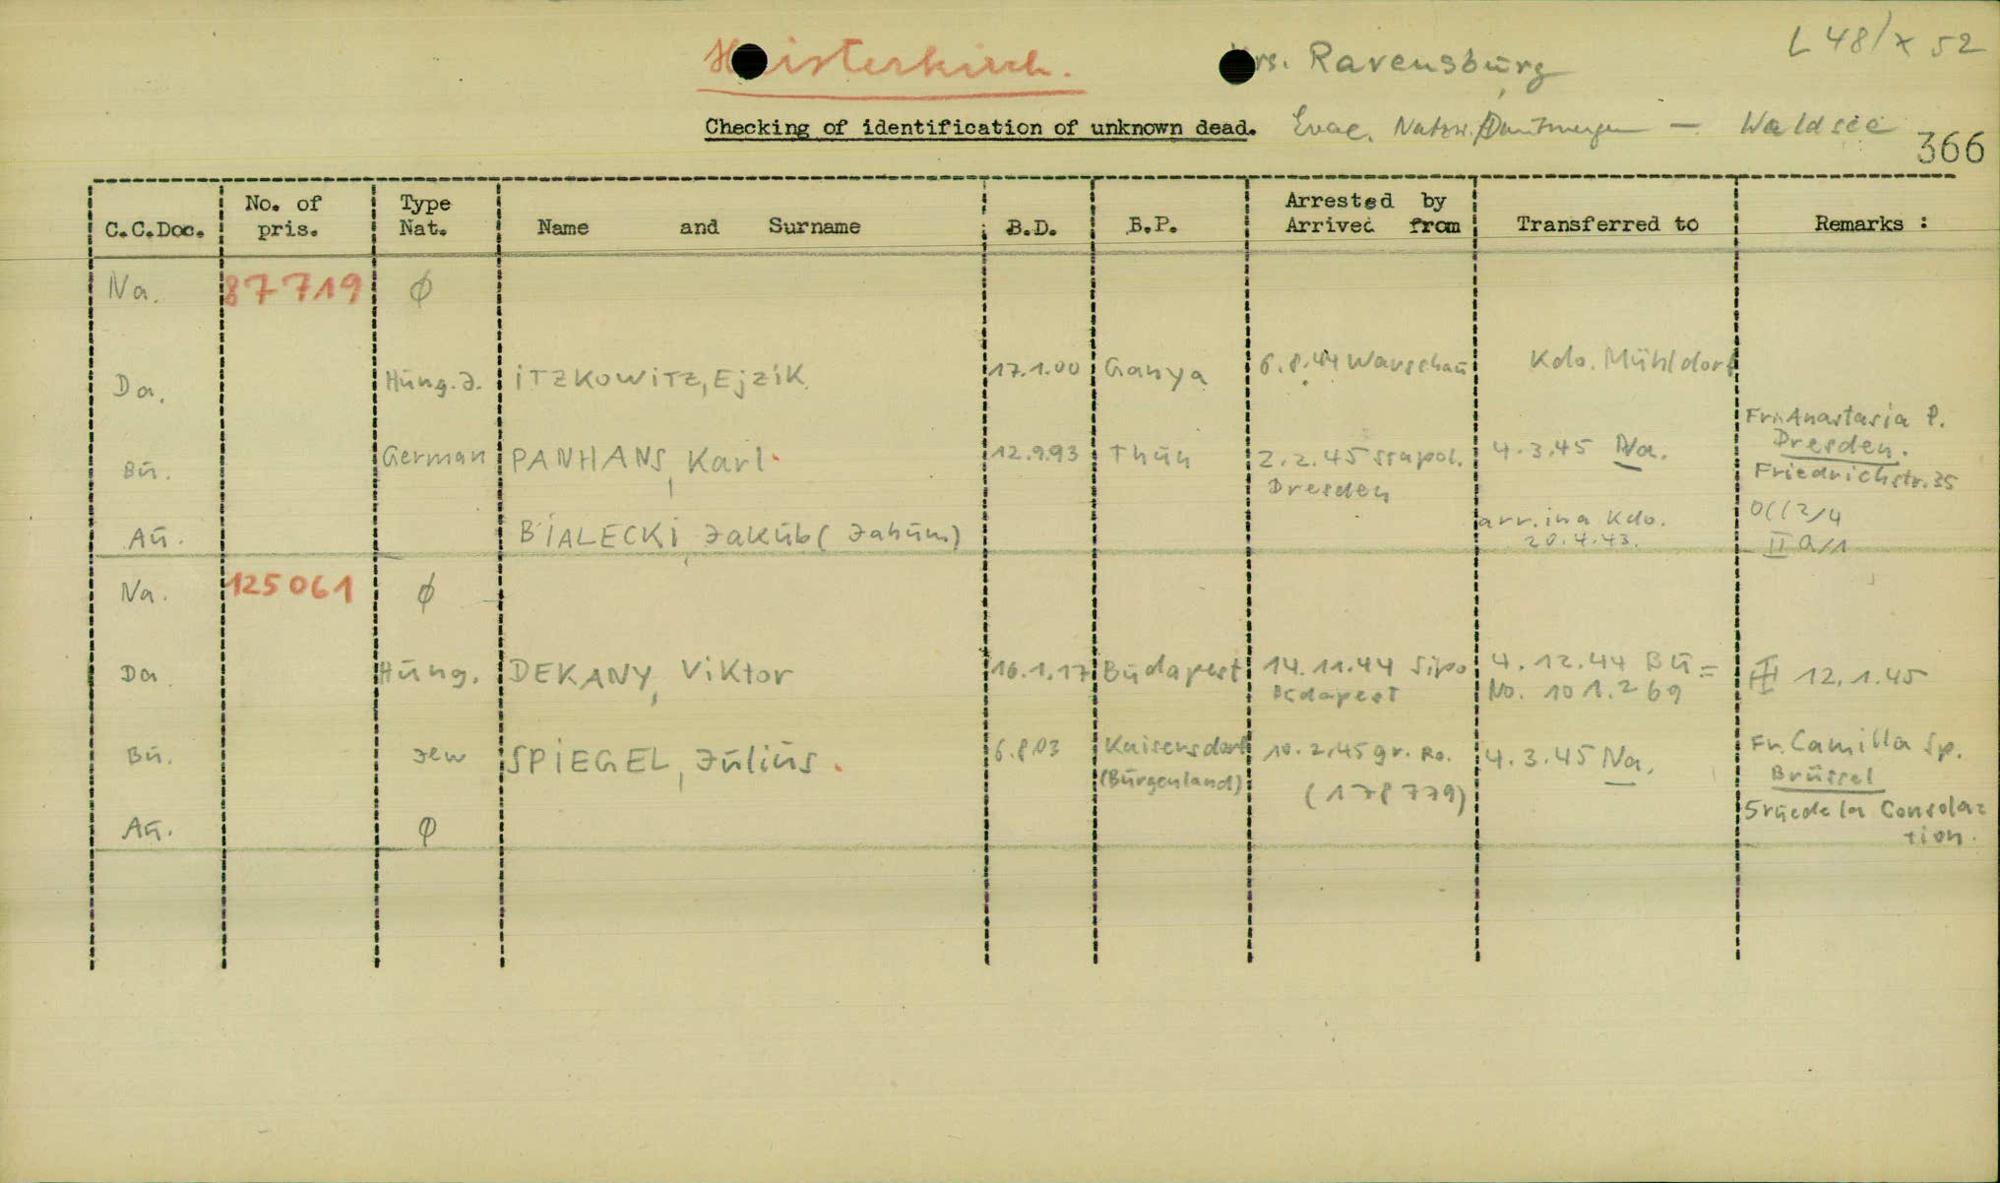 L 48/x 52
Haisterkirch. Krs. Ravensburg
Checking of identification of unknown dead. Evac. Natzw. Dautmergen — Waldsee
366
C.C.Doc. No. of pris. Type Nat. Name and Surname B.D. B.P. Arrested by Arrived from Transferred to Remarks :
Na. 87719 ø
Da. Hung. J. ITZKOWITZ, Ejzik 17.1.00 Ganya 6.8.44 Warschau Kdo. Mühldorf
Bu. German PANHANS, Karl 12.9.93 Thun 2.2.45 Stapol. Dresden 4.3.45 Na. Fr. Anastasia P. Dresden. Friedrichstr. 35
Au. BIALECKI, Jakub ( Jahum) arr. in a Kdo. 20.4.43. OCC 2/4 II a/1
Na. 125061 ø
Da. Hung. DEKANY, Viktor 16.1.17 Budapest 14.11.44 Sipo Bdapest 4.12.44 Bu = No. 101.269 III 12.1.45
Bu. Jew SPIEGEL, Julius. 6.8.03 Kaisersdorf (Burgenland) 10.2.45 gr. Ro. (178779) 4.3.45 Na. Fr. Camilla Sp. Brüssel 5 rue de la Consola= tion.
Au. ø